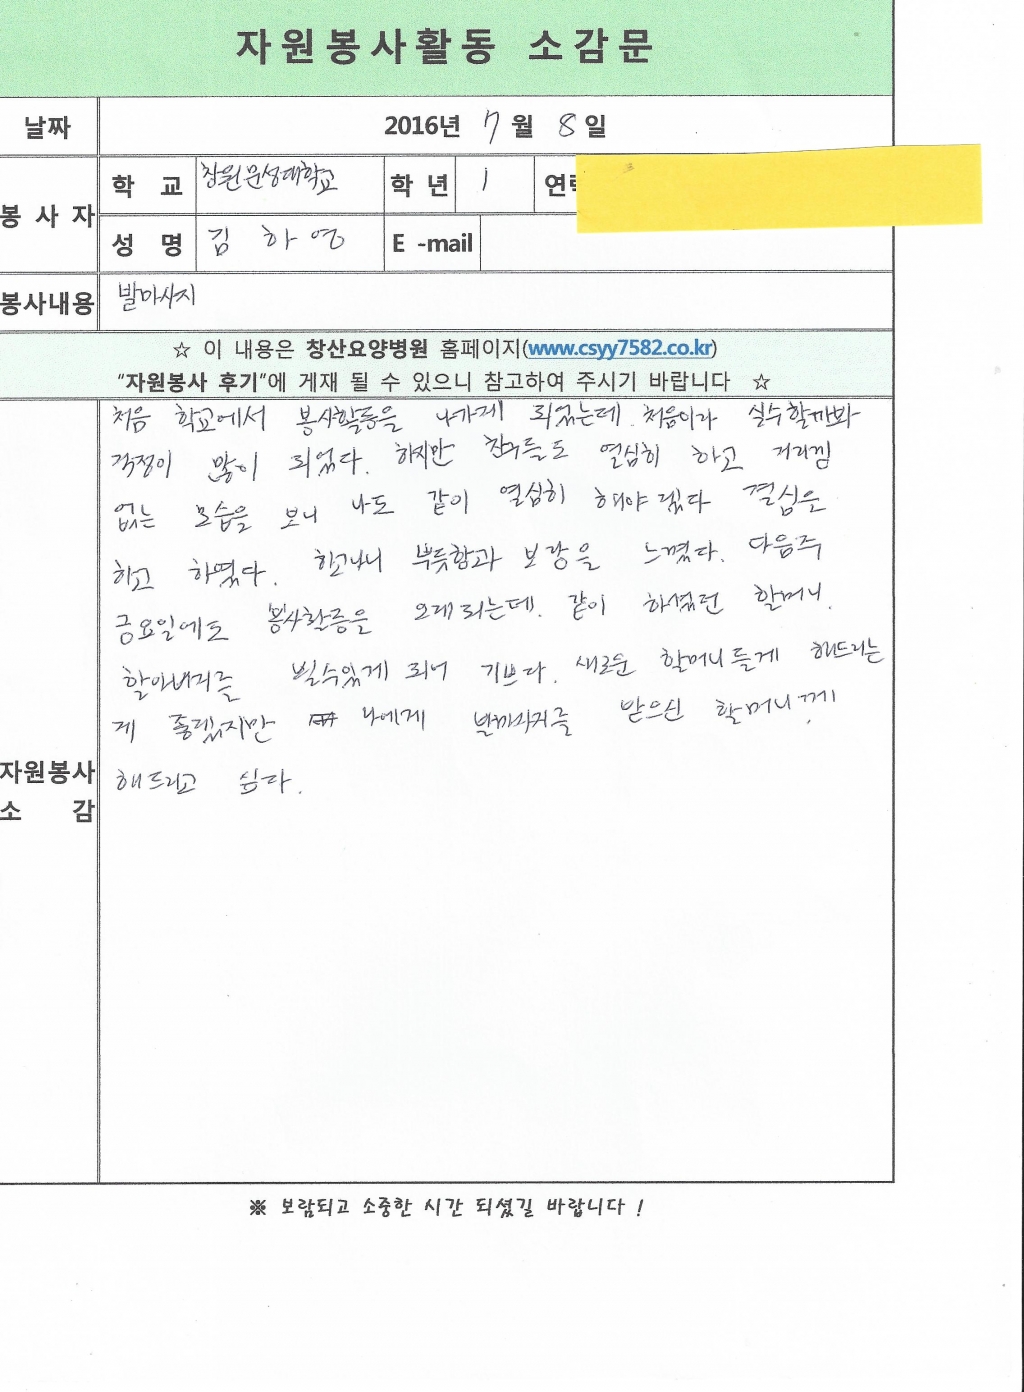 자원봉사활동 소감문
날짜 2016년 7월 8일
봉사자 학 교 창원문성대학교 학 년 1
성 명 김하영 E -mail
봉사내용 발마사지
☆ 이 내용은 창산요양병원 홈페이지(www.csyy7582.co.kr)
"자원봉사 후기"에 게재 될 수 있으니 참고하여 주시기 바랍니다 ☆
자원봉사 소 감
처음 학교에서 봉사활동을 나가게 되었는데. 처음이라 실수할까봐
걱정이 많이 되었다. 하지만 친구들도 열심히 하고 거리낌
없는 모습을 보니 나도 같이 열심히 해야겠다 결심은
하고 하였다. 하고나니 뿌듯함과 보람을 느꼈다. 다음주
금요일에도 봉사활동을 오게되는데. 같이 하셨던 할머니.
할아버지를 뵐수있게 되어 기쁘다. 새로운 할머니들께 해드리는
게 좋겠지만 나에게 발마사지를 받으신 할머니께
해드리고 싶다.
※ 보람되고 소중한 시간 되셨길 바랍니다 !